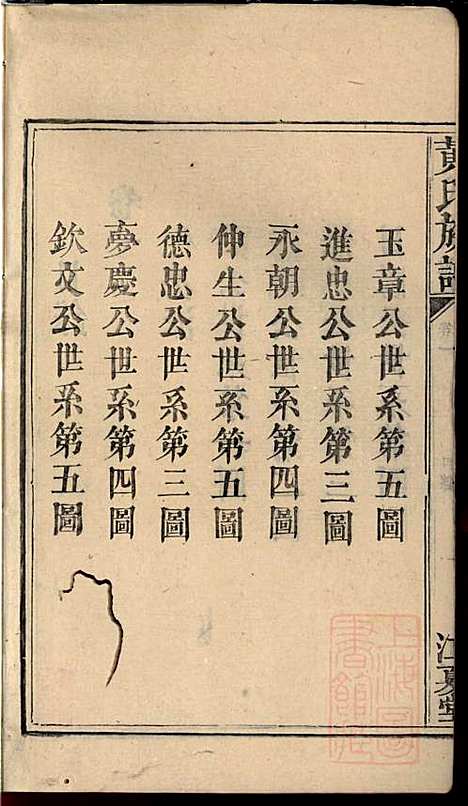 黃氏族譜
卷一
江夏堂
玉章公世系第五圖
進忠公世系第三圖
永朝公世系第四圖
仲生公世系第五圖
德忠公世系第三圖
夢慶公世系第四圖
欽文公世系第五圖
上海圖書館藏